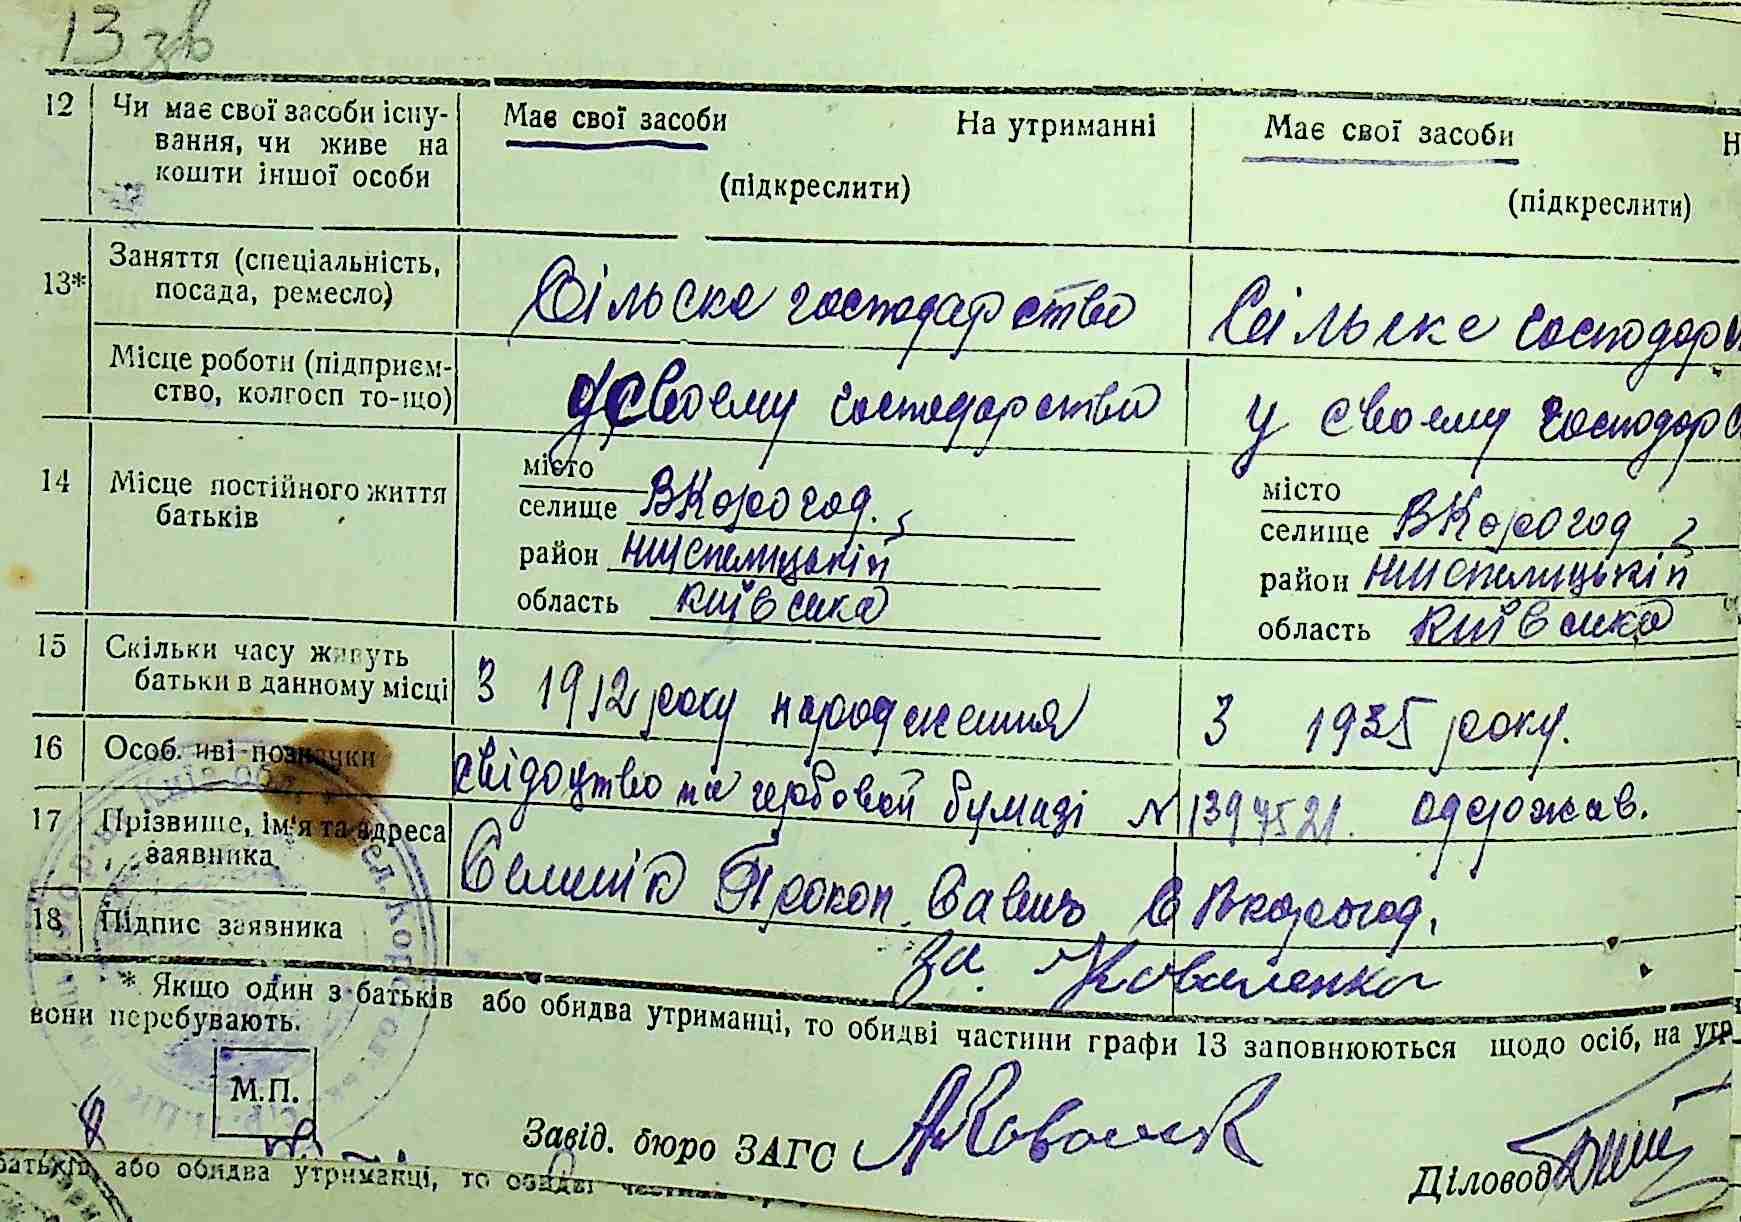 13 зв
12 Чи має свої засоби існу- Має свої засоби На утриманні Має свої засоби Н
вання, чи живе на
кошти іншої особи (підкреслити) (підкреслити)
13* Заняття (спеціальність, Сільске господарство Сільске господар
посада, ремесло)
Місце роботи (підприєм- у своему господарстві у своему господарс
ство, колгосп то-що)
14 Місце постійного життя місто місто
батьків селище ВКорогод. селище ВКорогод
район район
область київсика область київсика
15 Скільки часу живуть З 1912 року народження З 1935 року.
батьки в данному місці
16 Особливі познахчки свідоцтво на гербовой бумазі N 1397521. одержав.
17 Прізвище, ім'я та адреса Прокоп с Вкорогод.
заявника
18 Підпис заявника за. Коваленко
* Якщо один з батьків або обидва утриманці, то обидві частини графи 13 заповнюються щодо осіб, на утр
вони перебувають.
М.П.
Завід. бюро ЗАГС
Діловод
батьків або обидва утриманці, то обидві частини